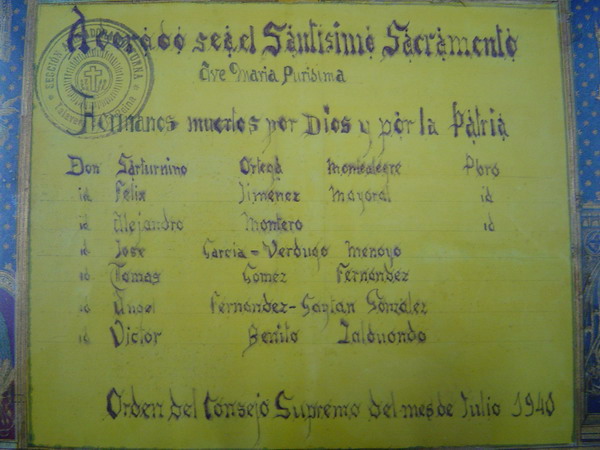 Adorado sea el Santisimo Sacramento
Ave Maria Purisima
Hermanos muertos por Dios y por la Patria
Don Sarturnino Ortega Montealegre Pbro
id Felix Jimenez Mayoral id
id Alejandro Montero id
id Jose Garcia = Verdugo Menoyo
id Tomas Gomez Fernandez
id Angel Fernandez-Gaytan Gonzalez
id Victor Benito Zalduondo
Orden del Consejo Supremo del mes de Julio 1940
SECCIÓN